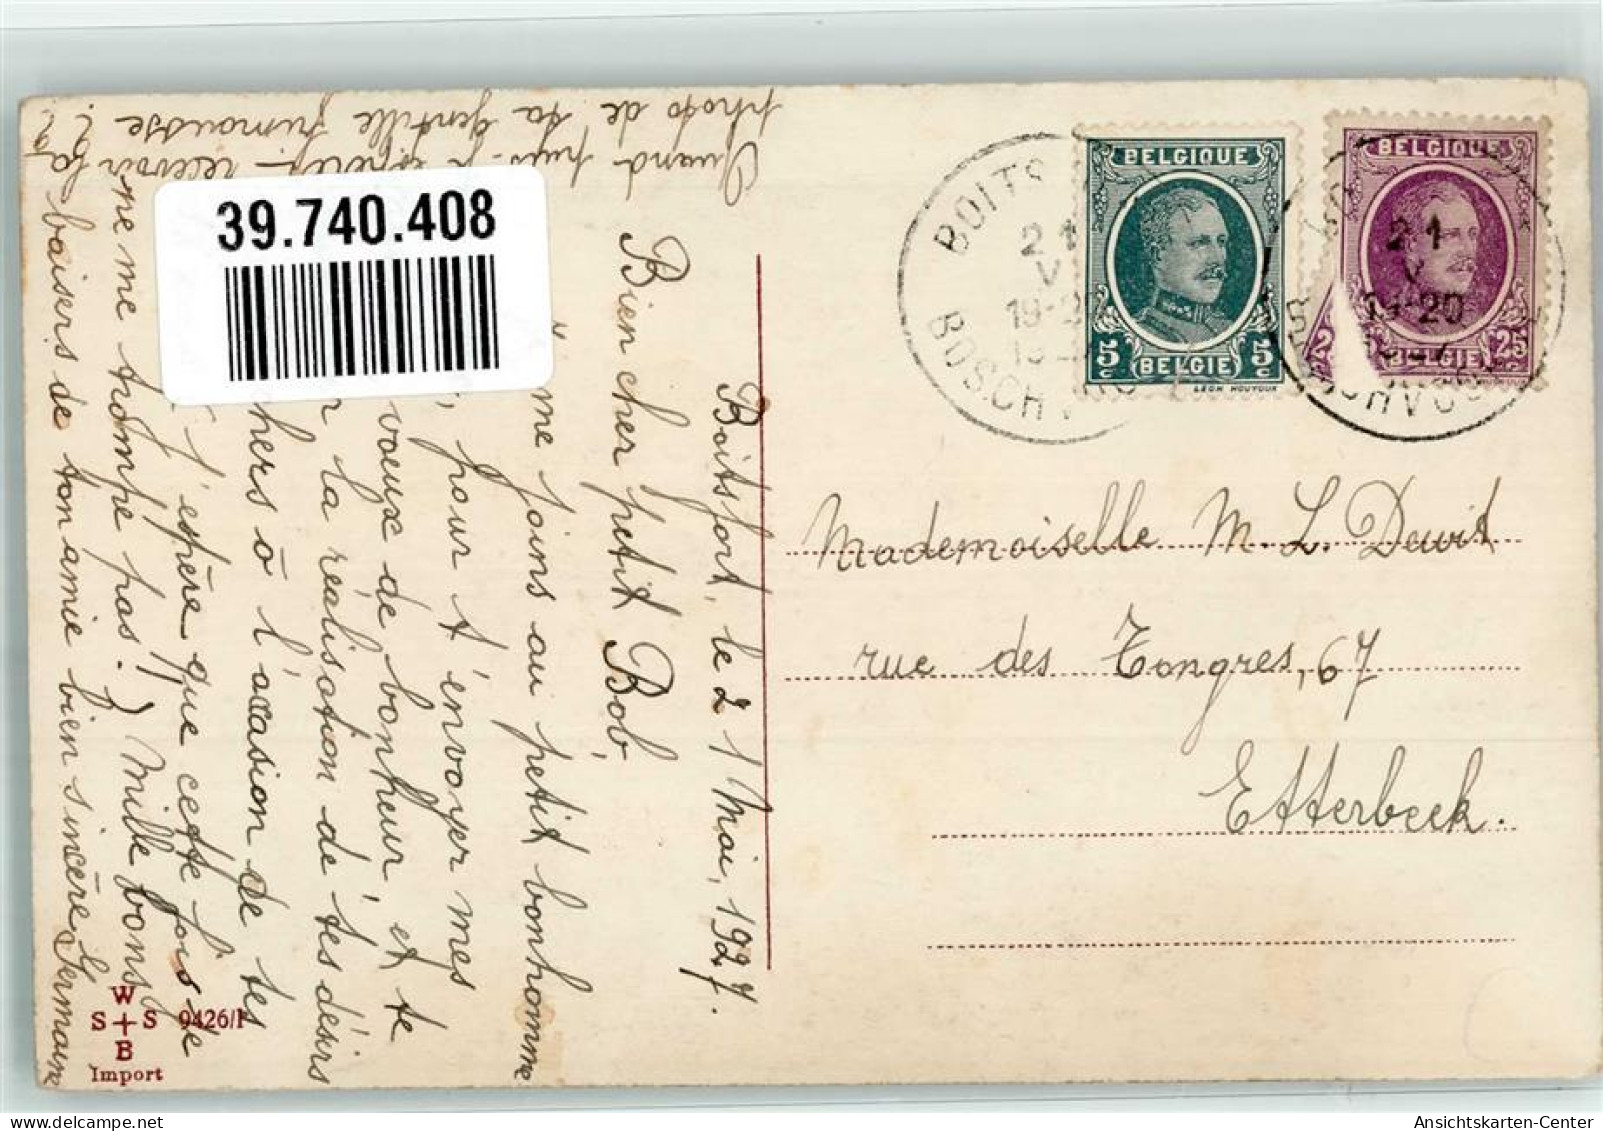 39.740.408
Quand puis-je espérer recevoir la
photo de ta gentille frimousse ??
Boitsfort, le 21 Mai, 1927.
Bien cher petit Bob,
me joins au petit bonhomme
pour t'envoyer mes
voeux de bonheur, et te
la réalisation de tes désirs
chers à l'occasion de tes
j'espère que cette fois je
ne me trompe pas!) Mille bons
baisers de ton amie bien sincère Germaine
W
S S
B
Import
9426/1
BOITS
BOSCHV
21
V
19-20
BELGIQUE
5c 5c
BELGIE
LÉON HOUYOUX
BELGIQUE
21
V
19-20
1927
25
BELGIE
Mademoiselle M. L. Dewit
rue des Tongres, 67
Etterbeek.
Ansichtskarten-Center